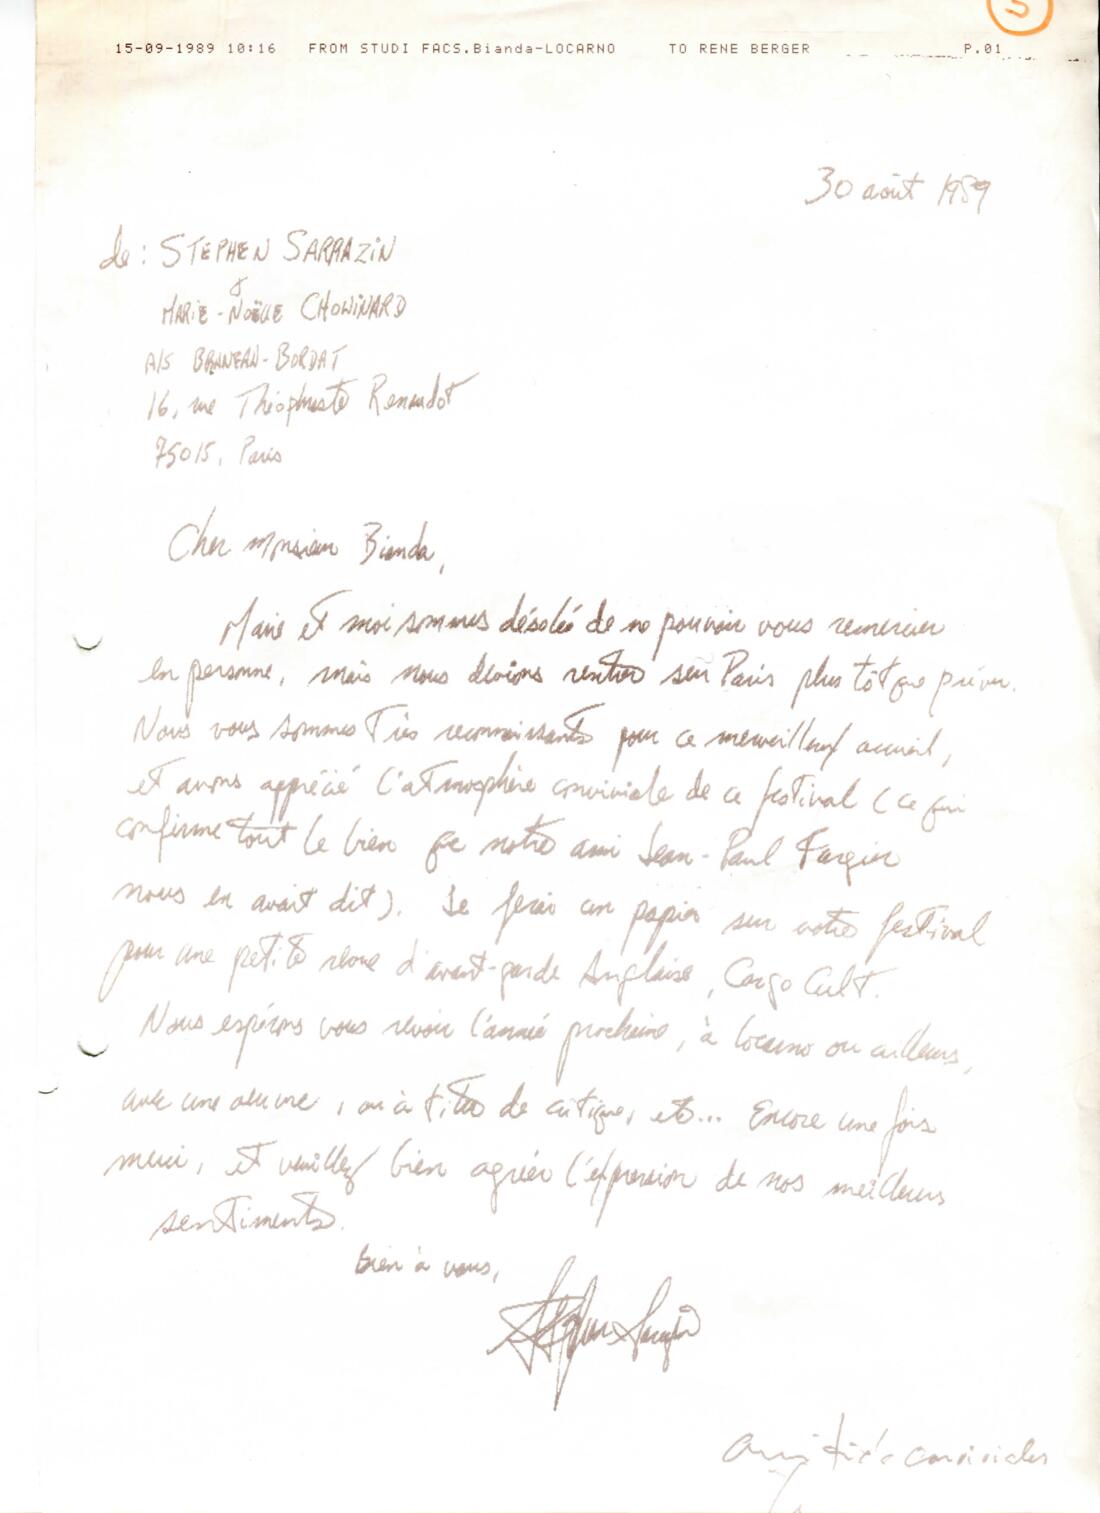 5
15-09-1989 10:16 FROM STUDI FACS.Bianda-LOCARNO TO RENE BERGER P.01
30 août 1989
de : STEPHEN SARRAZIN
&
MARIE-NOËLLE CHOWINARD
A/S BRUNEAU-BORDAT
16, rue Théophraste Renaudot
75015, Paris
Cher Monsieur Bianda,
Marie et moi sommes désolés de ne pouvoir vous remercier
en personne, mais nous devions rentrer sur Paris plus tôt que prévu.
Nous vous sommes très reconnaissants pour ce merveilleux accueil,
et avons apprécié l'atmosphère conviviale de ce festival (ce qui
confirme tout le bien que notre ami Jean-Paul Fargier
nous en avait dit). Je ferai un papier sur votre festival
pour une petite revue d'avant-garde Anglaise, Cargo Cult.
Nous espérons vous revoir l'année prochaine, à Locarno ou ailleurs,
avec une oeuvre, ou à titre de critique, etc... Encore une fois
merci, et veuillez bien agréer l'expression de nos meilleurs
sentiments.
bien à vous,
Stephen Sarrazin
Amitiés conviviales